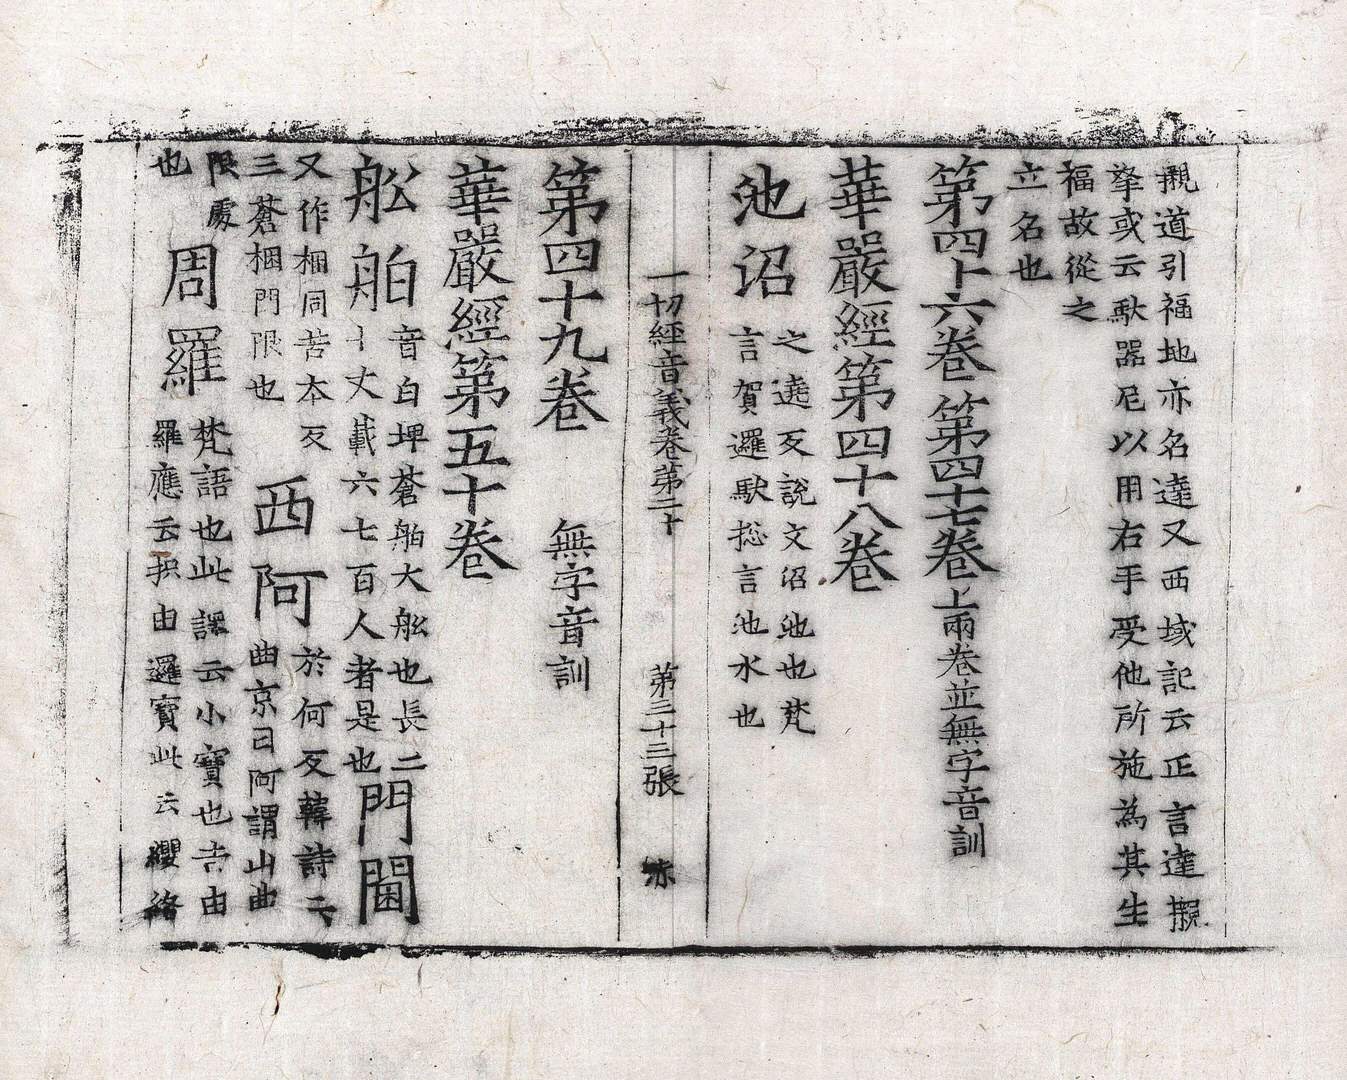 覩道引福地亦名達又西域記云正言達櫬
拏或云馱器尼以用右手受他所施為其生
福故從之
立名也
第四十六卷第四十七卷上兩卷並無字音訓
華嚴經第四十八卷
池沼之遶反說文沼池也梵
言賀邏馱捴言池水也
一切經音義卷第二十 第三十三張
第四十九卷 無字音訓
華嚴經第五十卷
舩舶音白埤蒼舶大舩也長二
十丈載六七百人者是也
門閫
又作梱同苦本反
三蒼梱門限也
西阿於何反韓詩云
曲京曰阿謂山曲
限處
也
周羅梵語也此譯云小寶也言由
羅應云抧由邏寶此云纓絡